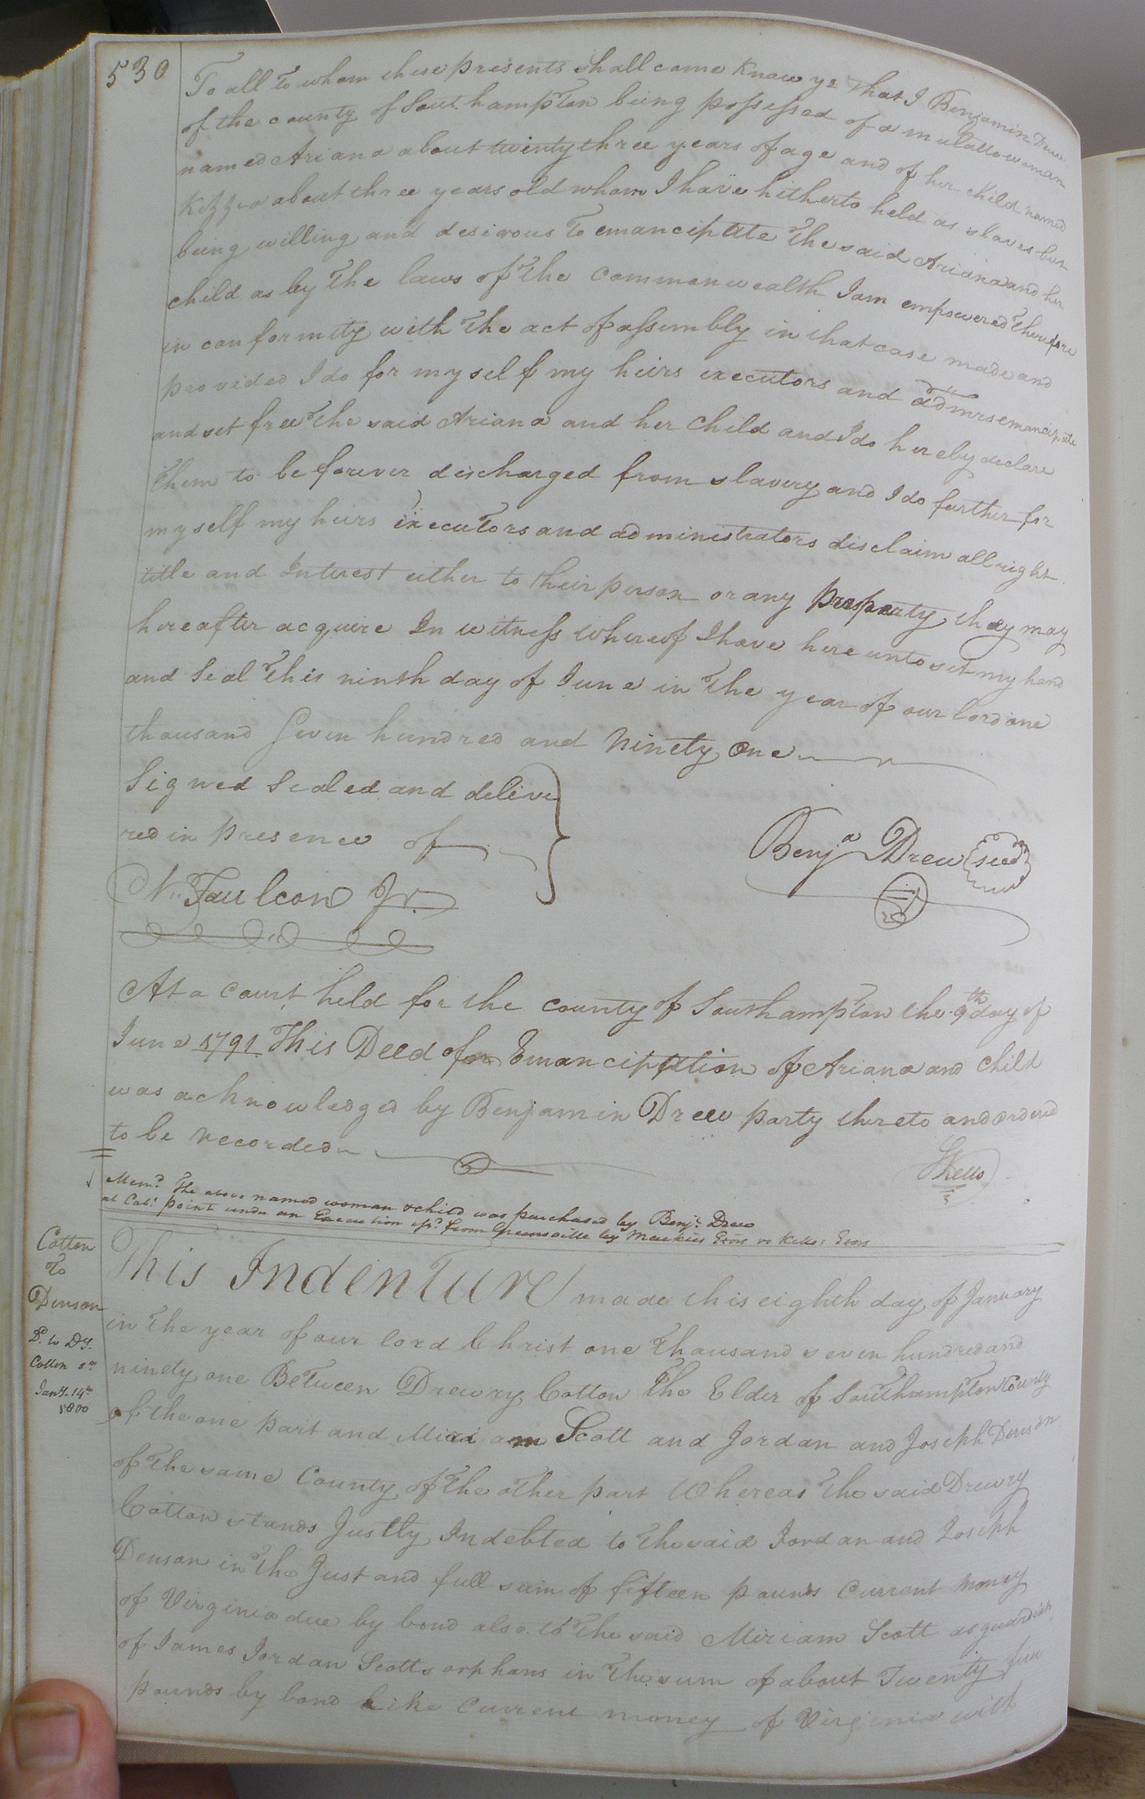 530
To all to whom these presents shall come Know ye that I Benjamin Drew
of the county of Southampton being possessed of a mulattowoman
named Ariana about twenty three years of age and of her child named
Kizzea about three years old whom I have hitherto held as slaves but
being willing and desirous to emancipate the said Ariana and her
child as by the laws of the commonwealth I am empowered therefore
in conformity with the act of assembly in that case made and
provided I do for myself my heirs executors and admrs emancipate
and set free the said Ariana and her child and I do hereby declare
them to be forever discharged from slavery and I do further for
myself my heirs executors and administrators disclaim all right
title and Interest either to their person or any property they may
hereafter acquire In witness whereof I have hereunto set my hand
and Seal this ninth day of June in the year of our lord one
thousand Seven hundred and Ninety One
Signed Sealed and delive
red in presence of
N. Faulcon Jr.
Benja Drew seal
At a Court held for the county of Southampton the 9th day of
June 1791. This Deed of Emancipation of Ariana and child
was acknowledged by Benjamin Drew party thereto and ordered
to be recorded
Kello
Memo. The above named woman & child was purchased by Benja Drew
at Cab: point under an Execution from Greensville by Mackies Exors vs Kello: Exors
Cotton
To
Denson
D. to Dy.
Cotton
Jany. 14th
1800
This Indenture made this eighth day of January
in the year of our lord Christ one thousand seven hundred and
ninety one Between Drewry Cotton the Elder of Southampton County
of the one part and Miriam Scott and Jordan and Joseph Denson
of the same County of the other part Whereas the said Drewry
Cotton stands Justly Indebted to the said Jordan and Joseph
Denson in the Just and full sum of fifteen pounds Current money
of Virginia due by bond also to the said Miriam Scott as guardian
of James Jordan Scotts orphans in the sum of about Twenty five
pounds by bond like Current money of Virginia with